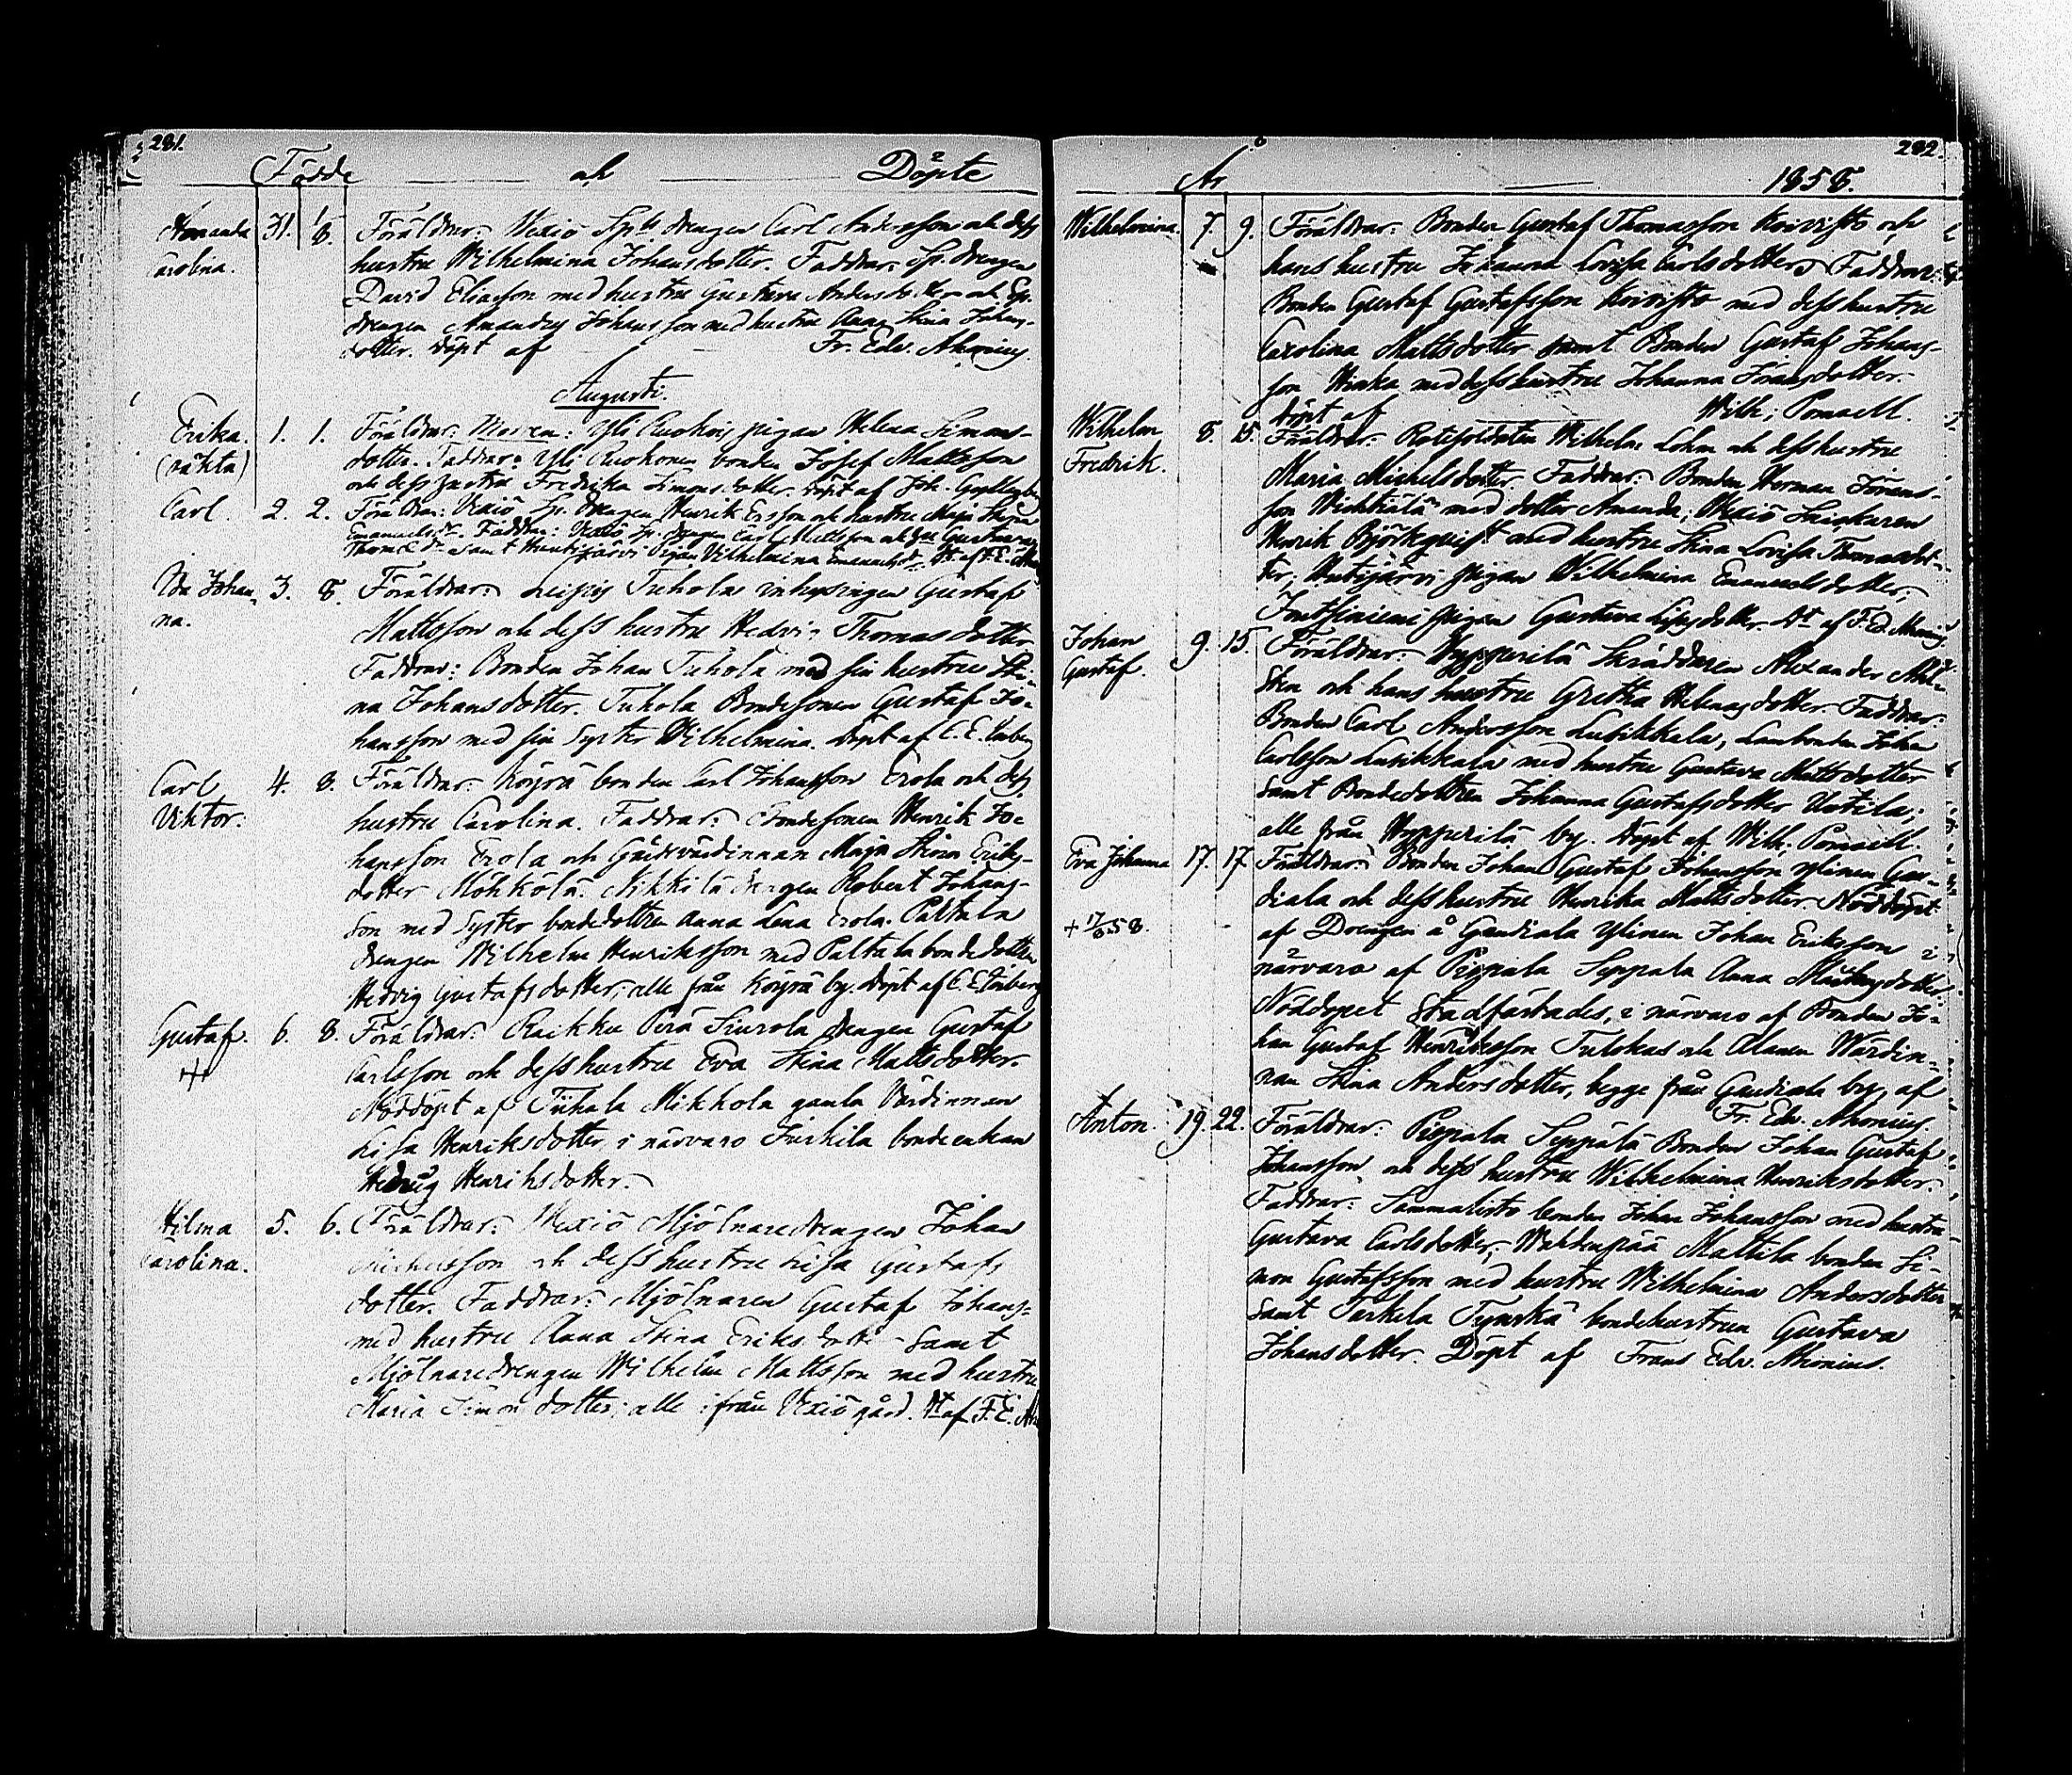 281.
Födde och Döpte
Amanda 31. 1/8. Föräldrar: Wexiö Sp. drengen Carl Andersson och dess
Carolina. hustru Wilhelmina Johansdotter. Faddrar: Sp. drengen
David Eliasson med hustru Gustava Andersdotter och Sp.
drengen Amandus Johansson med hustru Anna Stina Johans-
dotter. Döpt af Fr. Edv. Ahonius
Augusti.
Erika. 1. 1. Föräldrar: Modren: Yli pigan Helena Simons-
(oäkta) dotter. Faddrar: Yli bonden Josef Mattsson
och dess hustru Fredrika Simonsdotter. Döpt af Joh.
Carl. 2. 2. Föräldrar: Vexiö Sp. drengen Henrik Ersson och hustru Maja Stina
Emanuelsdr. Faddrar: Vexiö Sp. drengen Carl Mattsson och hu Gustava
Thomædr samt Huntijärvi Pigan Vilhelmina Emanuelsdr. Dt af F. E.
Ida Johan- 3. 8. Föräldrar: Tuhola inhysingen Gustaf
na. Mattsson och dess hustru Hedvig Thomasdotter
Faddrar: Bonden Johan Tuhola med sin hustru Sti-
na Johansdotter. Tuhola Bondesonen Gustaf Jo-
hansson med sin Syster Wilhelmina. Döpt af C. E.
Carl 4. 8. Föräldrar: Köyrä bonden Carl Johansson Erola och dess
Viktor. hustru Carolina. Faddrar: Bondesonen Henrik Jo-
hansson Erola och Gårdsvärdinnan Maja Stina Eriks-
dotter Möhkölä. Nikkilä drengen Robert Johans-
son med Syster bondedottren Anna Lena Erola. Paltala
drengen Wilhelm Henriksson med Paltala bondedottren
Hedvig Gustafsdotter, alle från Köyrä by. Döpt af C. E.
Gustaf. 6. 8. Föräldrar: Raikku Perä Siurola drengen Gustaf
Carlsson och dess hustru Eva Stina Mattsdotter.
Nöddöpt af Tiihala Mikkola gamla Värdinnan
Lisa Henriksdotter i närvaro bondeenkan
Hedvig Henriksdotter.
Hilma 5. 6. Föräldrar: Wexiö Mjölnaredrengen Johan
Carolina. Michelsson och dess hustru Lisa Gustafs
dotter. Faddrar: Mjölnaren Gustaf Johans-
med hustru Anna Stina Eriksdotter samt
Mjölnaredrengen Wilhelm Mattsson med hustru
Maria Simonsdotter; alle ifrån Vexiö gård. Dt af F. E. Ah
282.
År 1858.
Wilhelmina. 7. 9. Föräldrar: Bonden Gustaf Thomasson Koivisto och
hans hustru Johanna Lovisa Carlsdotter. Faddrar:
Bonden Gustaf Gustafsson Koivisto med dess hustru
Carolina Mattsdotter samt Bonden Gustaf Johans-
son med dess hustru Johanna Fransdotter.
Döpt af Wilh. Pomoell.
Wilhelm 8. 15. Föräldrar: Rotesoldaten Wilhelm Lohm och dess hustru
Fredrik. Maria Michelsdotter. Faddrar: Bonden Herman Jörans-
son med dotter Amanda; Wexiö Snickaren
Henrik Björkqvist med hustru Stina Lovisa Thomasdot-
ter; Huntijärvi pigan Wilhelmina Emanuelsdotter;
pigan Gustava dotter. Dt af F. Ed. Ahonius
Johan 9. 15. Föräldrar: Wopperilä Skräddaren Alexander
Gustaf. och hans hustru Gretha Helena dotter. Faddrar:
Bonden Carl Andersson Lusikkala, Lambonden Johan
Carlsson Lusikkala med hustru Gustava Mattsdotter
samt Bondedottren Johanna Gustafsdotter Untila;
alle från Wopperilä by. Döpt af Wilh. Pomoell.
Eva Johanna 17. 17 Föräldrar: Bonden Johan Gustaf Johansson Ylinen Gan-
diala och dess hustru Henrika Mattsdotter. Nöddöpt
+ 17/8 58. af Drengen å Gandiala Ylinen Johan Eriksson i
närvaro af Pispala Seppala Anna dotter.
Nöddopet Stadfästades, i närvaro af Bonden Jo-
han Gustaf Henriksson Tulokas och Alanen Wärdin-
nan Stina Andersdotter, begge från Gandiala by, af
Fr. Edv. Ahonius.
Anton. 19. 22. Föräldrar: Pispala Seppälä Bonden Johan Gustaf
Johansson och dess hustru Wilhelmina Henriksdotter.
Faddrar: Sammalisto bonden Johan Johansson med hustru
Gustava Carlsdotter; Wahdenpää Mattila bonden Si-
mon Gustafsson med hustru Wilhelmina Andersdotter
samt bondehustrun Gustava
Johansdotter. Döpt af Frans Edv. Ahonius.